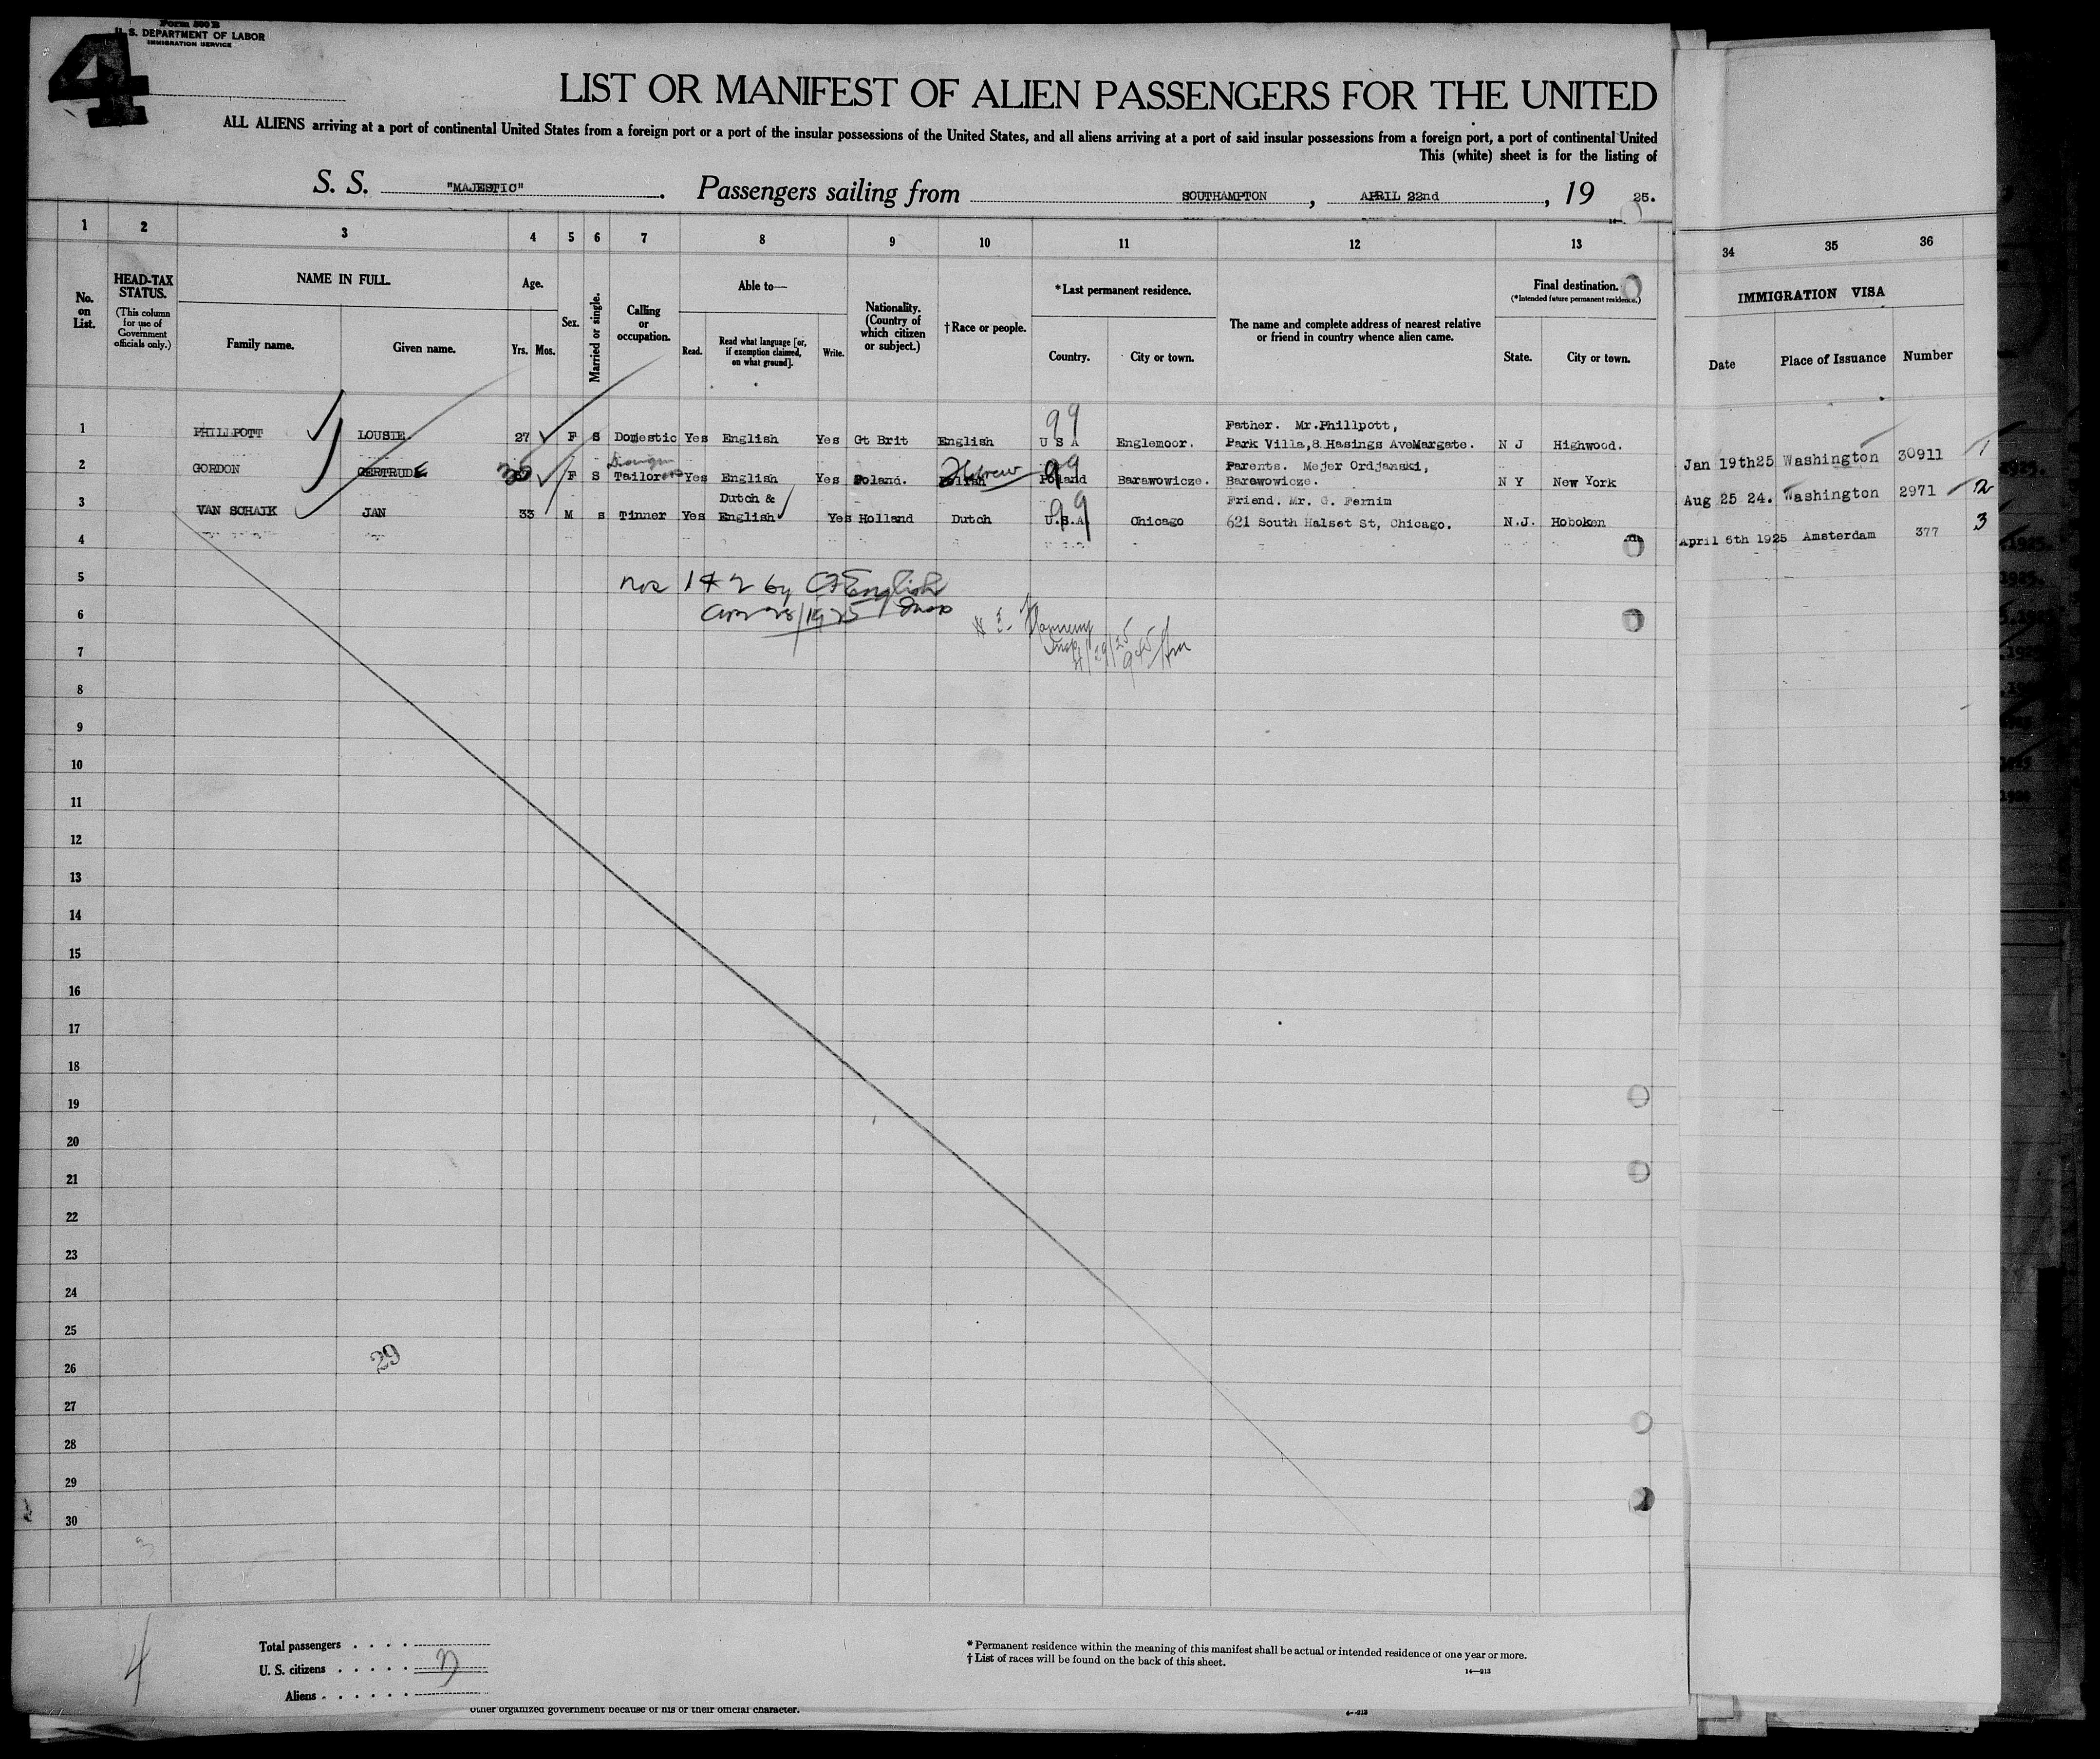 4
Form 500 B
U. S. DEPARTMENT OF LABOR
IMMIGRATION SERVICE
LIST OR MANIFEST OF ALIEN PASSENGERS FOR THE UNITED
ALL ALIENS arriving at a port of continental United States from a foreign port or a port of the insular possessions of the United States, and all aliens arriving at a port of said insular possessions from a foreign port, a port of continental United
This (white) sheet is for the listing of
S. S. "MAJESTIC". Passengers sailing from SOUTHAMPTON, APRIL 22nd, 19 25.
1 2 3 4 5 6 7 8 9 10 11 12 13 34 35 36
No. on List.
HEAD-TAX STATUS.
(This column for use of Government officials only.)
NAME IN FULL.
Family name. Given name.
Age.
Yrs. Mos.
Sex.
Married or single.
Calling or occupation.
Able to—
Read. Read what language [or, if exemption claimed, on what ground]. Write.
Nationality. (Country of which citizen or subject.)
†Race or people.
*Last permanent residence.
Country. City or town.
The name and complete address of nearest relative or friend in country whence alien came.
Final destination.
(*Intended future permanent residence.)
State. City or town.
IMMIGRATION VISA
Date Place of Issuance Number
99
Father. Mr.Phillpott,
1 PHILLPOTT LOUSIE. 27 F S Domestic Yes English Yes Gt Brit English U S A Englemoor. Park Villa,8 Hasings AveMargate. N J Highwood. Jan 19th25 Washington 30911 1
Parents. Mejer Ordjanski,
2 GORDON GERTRUDE F S Tailoress Yes English Yes Poland. Polish Hebrew 99 Poland Barawowicze. Barawowicze. N Y New York Aug 25 24. Washington 2971 2
Dutch & Friend. Mr. G. Fernim
3 VAN SCHAIK JAN 33 M s Tinner Yes English Yes Holland Dutch 99 U.S.A Chicago 621 South Halset St, Chicago. N.J. Hoboken April 6th 1925 Amsterdam 377 3
4
5
nos 1 & 2 by English
6
Apr 28/1925 Insp
7
8
9
10
11
12
13
14
15
16
17
18
19
20
21
22
23
24
25
29
26
27
28
29
30
4
Total passengers . . . .
U. S. citizens . . . . .
Aliens . . . . . .
* Permanent residence within the meaning of this manifest shall be actual or intended residence of one year or more.
† List of races will be found on the back of this sheet.
14—213
other organized government because of his or their official character.